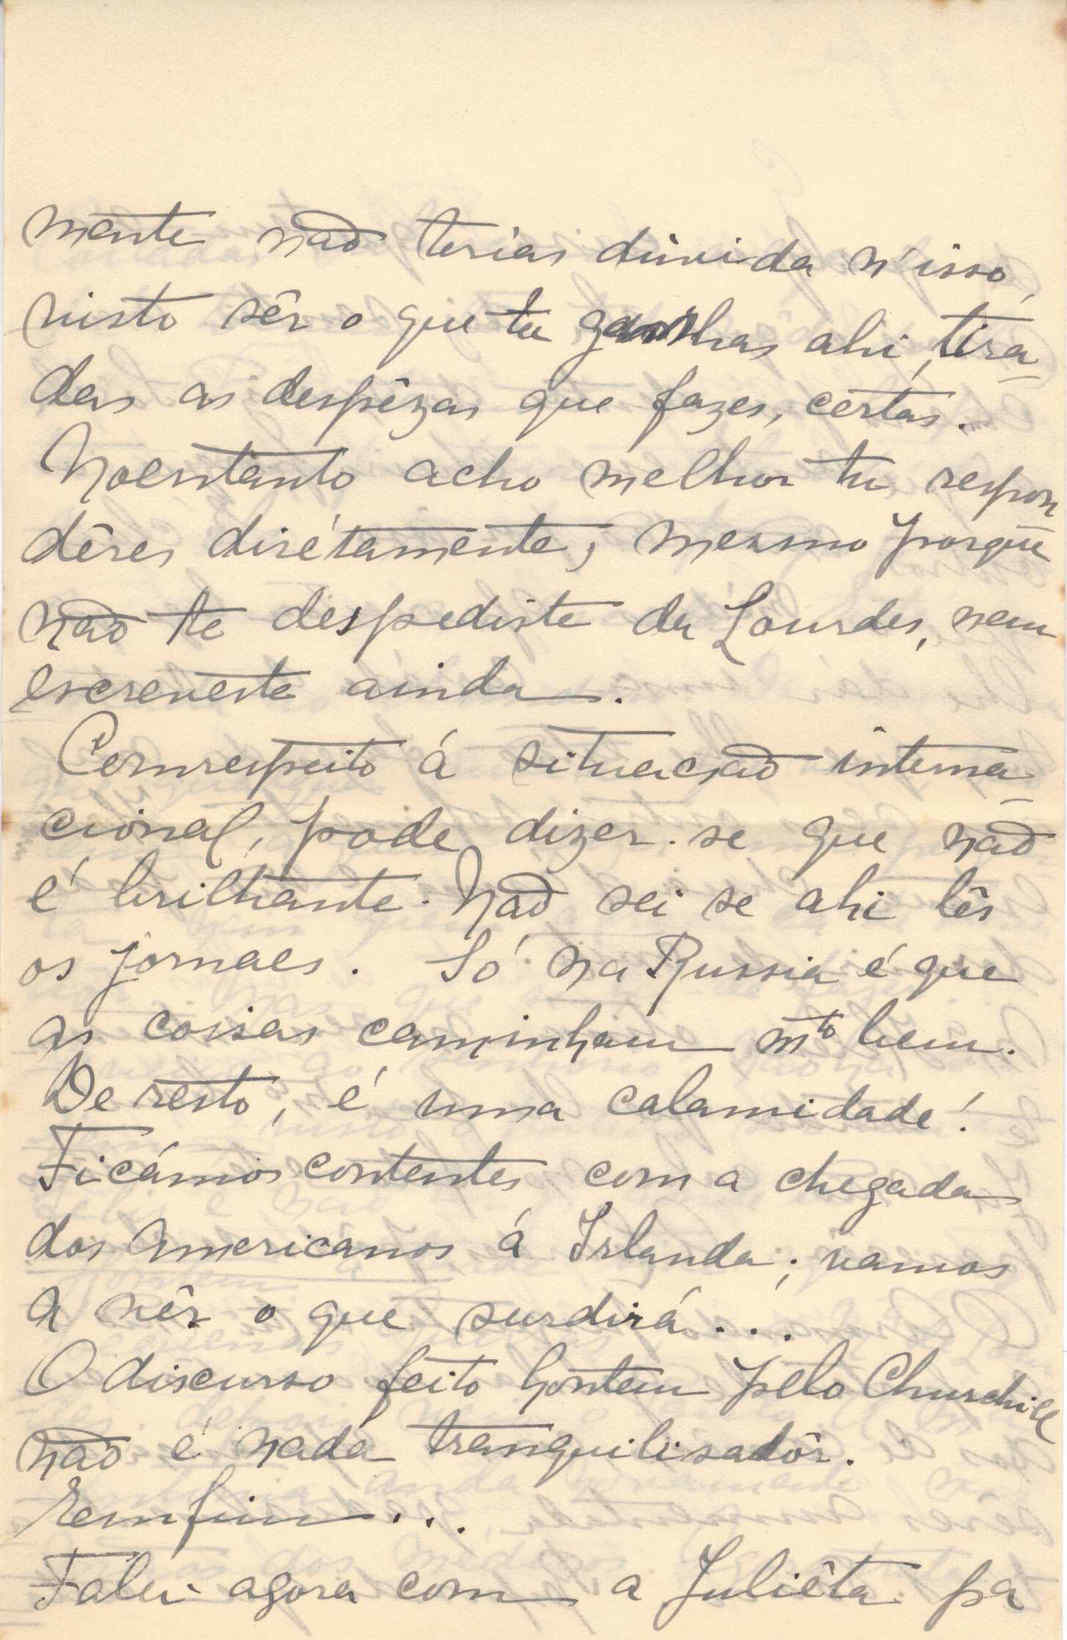 mente não terias dúvida n'isso,
visto sêr o que tu ganhas ahi, tira-
das as despêzas que fazes, cértas.
Noentanto acho melhor tu respon
dêres dirétamente, mesmo porque
não te despediste da Lourdes, nem
escreveste ainda.
Comrespeito á situação interna-
cional, pode dizer-se que não
é brilhante. Não sei se ahi lês
os jornaes. Só na Russia é que
as coisas caminham mto bem.
De resto, é uma calamidade!
Ficámos contentes com a chegada
dos Americanos á Irlanda; vamos
a vêr o que surdirá...
O discurso feito hontem pelo Churchill
não é nada tranquilisadôr.
Emfim...
Falei agora com a Juliêta pa